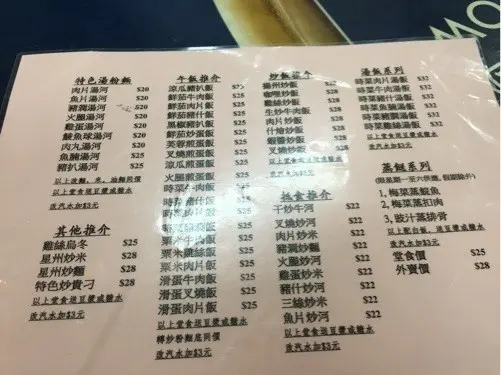 特色湯粉麵
肉片湯河 $20
魚片湯河 $20
豬潤湯河 $20
火腿湯河 $20
雞蛋湯河 $20
鯪魚球湯河 $20
肉丸湯河 $20
魚腩湯河 $25
豬扒湯河 $25
以上堂食送豆漿或糖水
改汽水加$3元
其他推介
雞絲烏冬 $25
星州炒米 $28
星州炒麵 $28
特色炒貴刁 $28
以上堂食送豆漿或糖水
改汽水加$3元
午飯推介
涼瓜豬扒飯 $25
鮮茄牛肉飯 $25
鮮茄肉片飯 $25
鮮茄豬扒飯 $25
黑椒豬扒飯 $25
鮮茄炒蛋飯 $25
芙蓉煎蛋飯 $25
叉燒煎蛋飯 $25
涼瓜煎蛋飯 $25
火腿煎蛋飯 $25
時菜牛肉飯 $25
時菜
時菜魚片飯 $25
時菜
粟米
粟米雞絲飯 $25
粟米肉片飯 $25
滑蛋牛肉飯 $25
滑蛋叉燒飯 $25
滑蛋肉片飯 $25
以上堂食送豆漿或糖水
轉炒粉麵底同價
改汽水加$3元
炒飯推介
揚州炒飯 $25
雞絲炒飯 $25
生炒牛肉飯 $25
肉片炒飯 $25
什燴炒飯 $25
叉燒炒飯 $25
以上堂食送豆漿或糖水
改汽水加$3元
抵食推介
干炒牛河 $22
叉燒炒河 $22
肉片炒米 $22
豬潤炒麵 $22
火腿炒河 $22
雞蛋炒米 $22
豬什炒河 $22
三絲炒米 $22
魚片炒河 $22
以上堂食送豆漿或糖水
改汽水加$3元
湯飯系列
時菜肉片湯飯 $32
時菜牛肉湯飯 $32
時菜豬什湯飯 $32
時菜魚片湯飯 $32
時菜豬潤湯飯 $32
時菜雞絲湯飯 $32
以上堂食送豆漿或糖水
改汽水加$3元
蒸飯系列
1, 梅菜蒸鯇魚
2, 梅菜蒸扣肉
3, 豉汁蒸排骨
以上配白飯, 送豆漿或糖水
堂食價 $25
外賣價 $28
改汽水加$3元